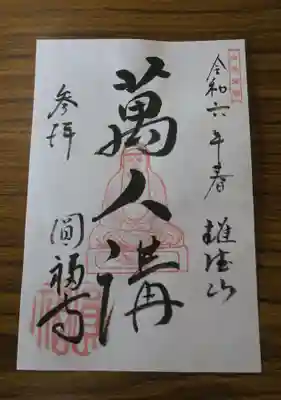 令和六年春 雄徳山
萬人講
参拝
圓福寺